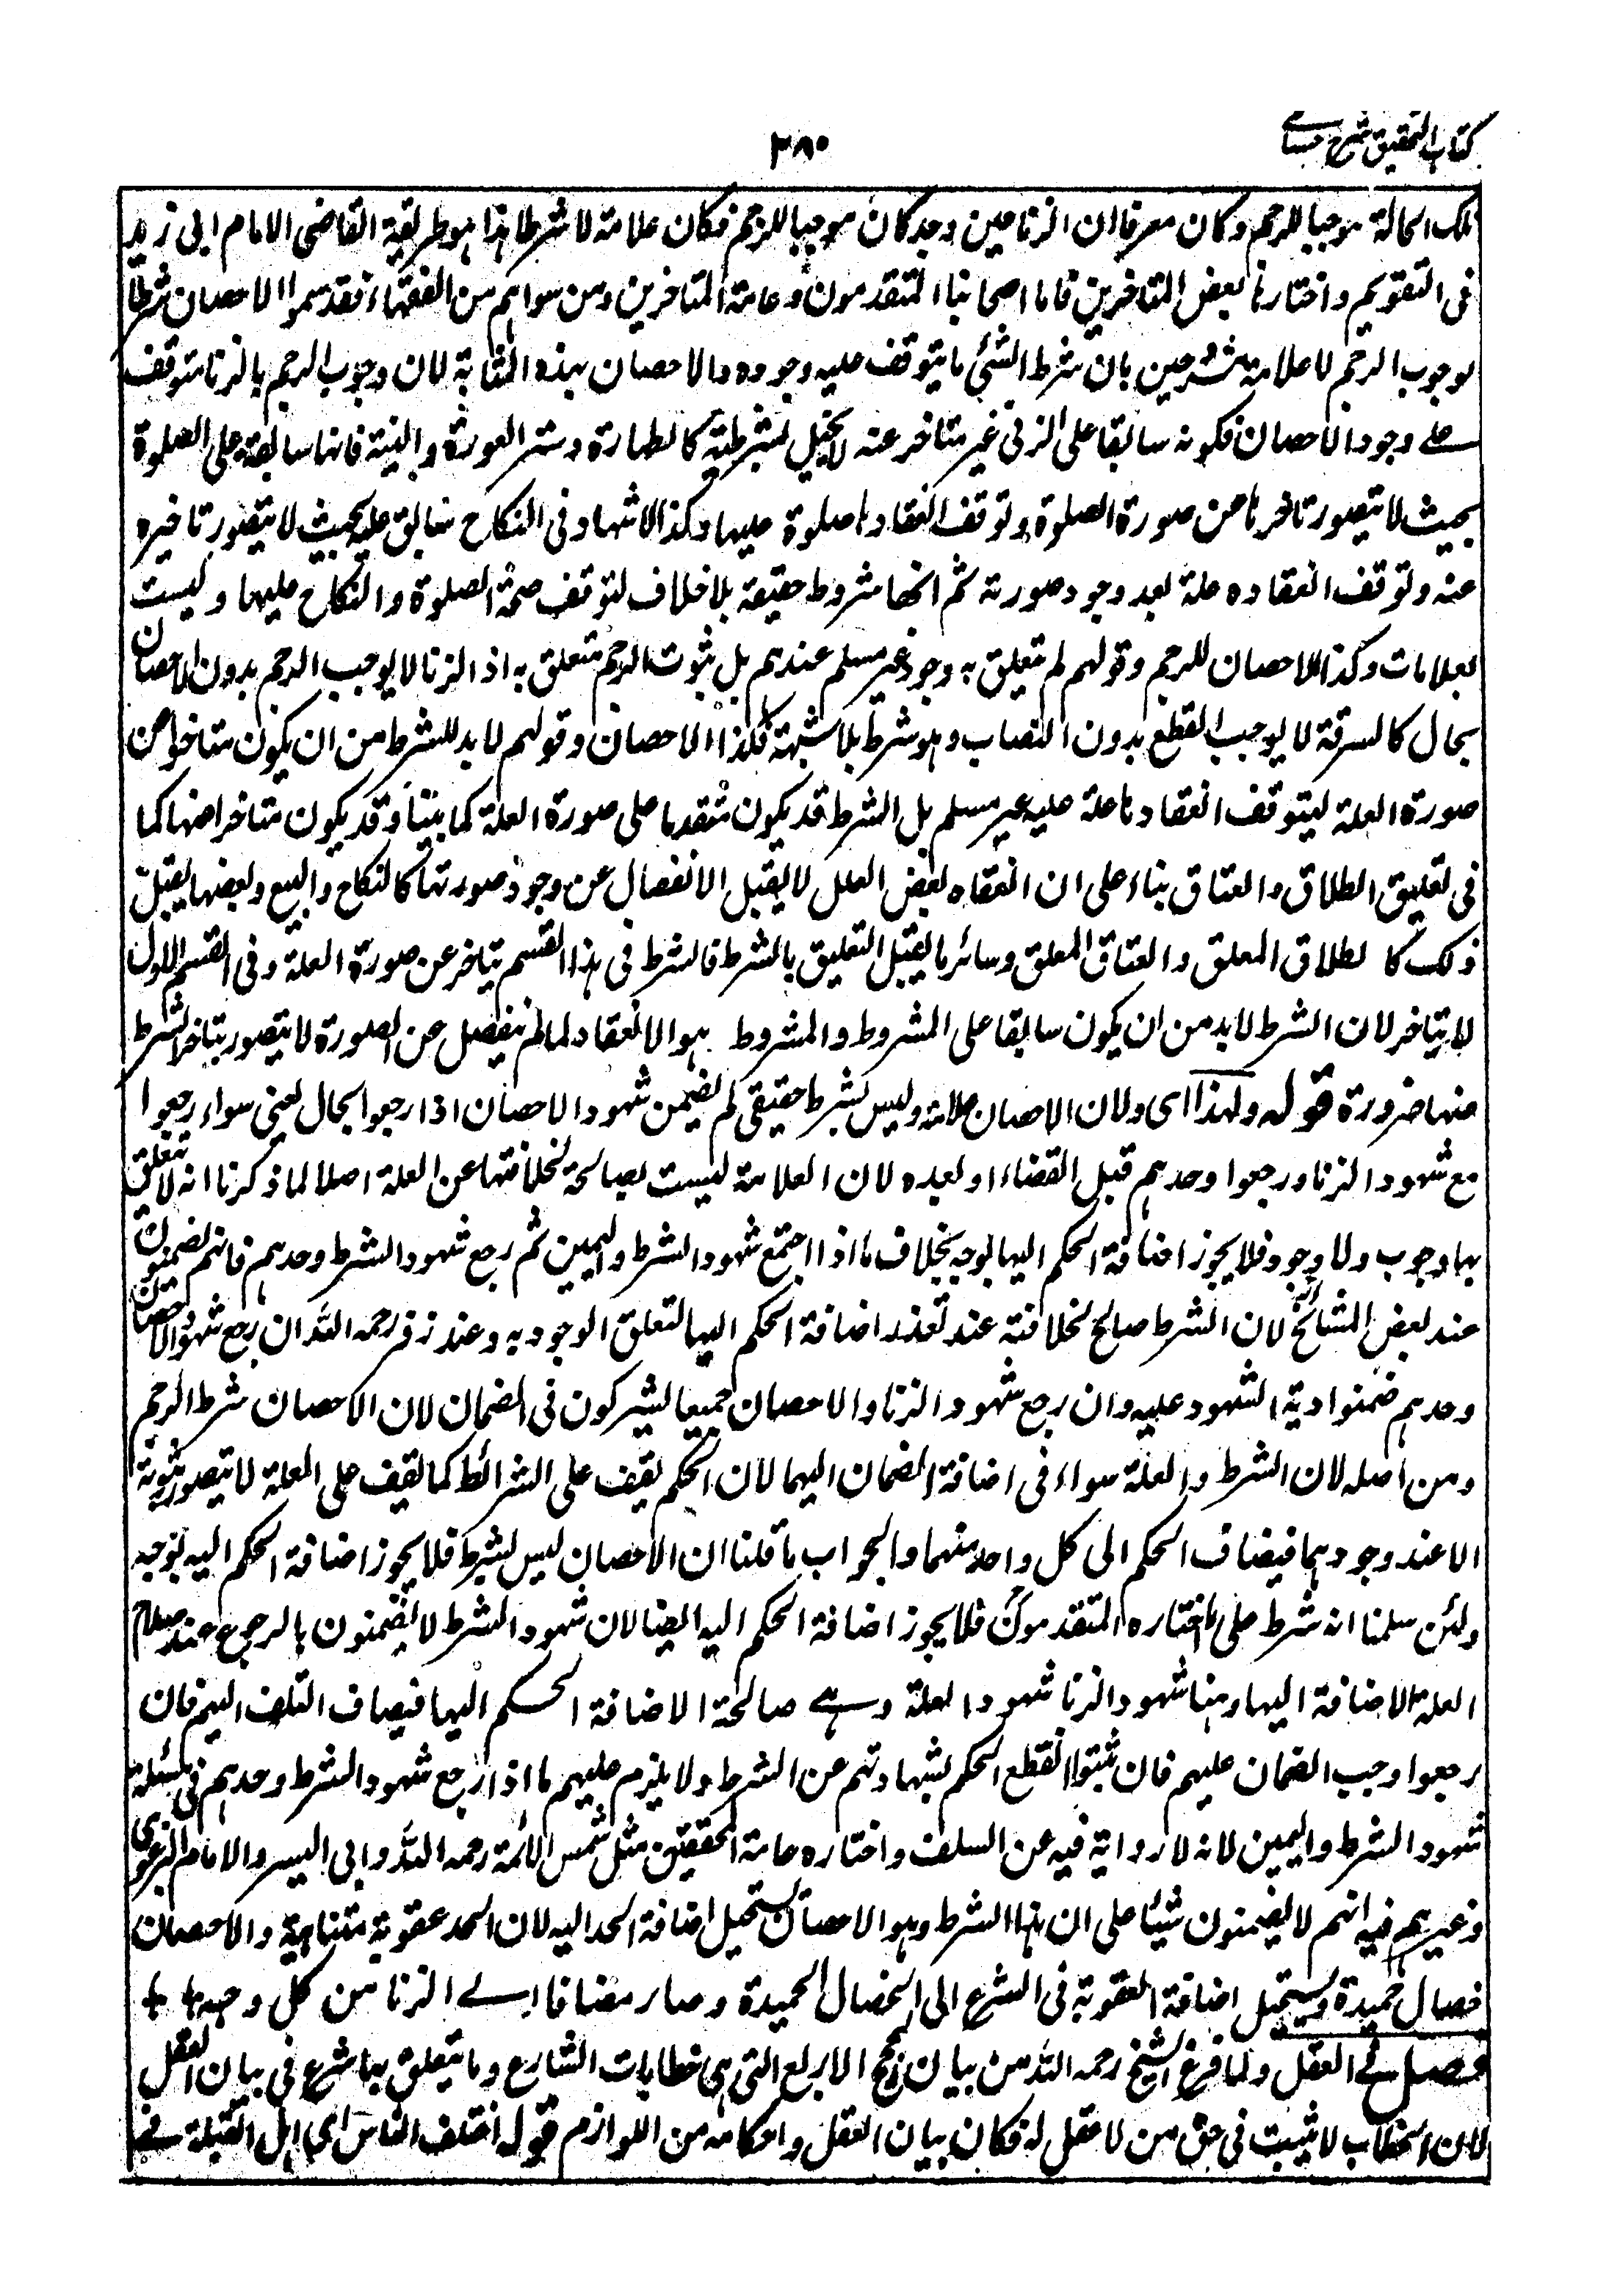 كتاب التحقيق شرح حسامے
٣٨٠
تلك الحالة موجبا للرجم وكان معرفا ان الزنا حين وجد كان موجبا للرجم فكان علامة لا شرطا هذا هو طريقة القاضى الامام ابى زيد
فى التقويم واختارها بعض المتاخرين فاما اصحابنا المتقدمون وعامة المتاخرين ومن سواهم من الفقهاء فقد سموا الاحصان شرطا
لوجوب الرجم لا علامة بان شرط الشئ ما يتوقف عليه وجوده والاحصان بهذه المثابة لان وجوب الرجم بالزنا متوقف
علے وجود الاحصان فكونه سابقا على الزنى غير متاخر عنه لا يخيل بشرطية كالطهارة وستر العورة والنية فانها سابقة على الصلوة
بحيث لا يتصور تاخرها عن صورة الصلوة وتوقف انعقادها صلوة عليها وكذا الاشهاد فى النكاح سابق عليه بحيث لا يتصور تاخيره
عنه وتوقف انعقاده علة بعد وجود صورته ثم انها شروط حقيقة بلا خلاف لتوقف صحة الصلوة والنكاح عليها وليست
بعلامات وكذا الاحصان للرجم وقولهم لم يتعلق به وجود غير مسلم عندهم بل ثبوت الرجم متعلق به اذ الزنا لا يوجب الرجم بدون الاحصان
بحال كالسرقة لا يوجب القطع بدون النصاب وهو شرط بلا شبهة فكذا الاحصان وقولهم لا بد للشرط من ان يكون متاخرا عن
صورة العلة ليتوقف انعقادها علة عليه غير مسلم بل الشرط قد يكون متقدما على صورة العلة كما بينا وقد يكون متاخرا عنها كما
فى تعليق الطلاق والعتاق بناء على ان انعقاد بعض العلل لا يقبل الانفصال عن وجود صورتها كالنكاح والبيع وبعضها يقبل
ذلك كا لطلاق المعلق والعتاق المعلق وسائر ما يقبل التعليق بالشرط فالشرط فى هذا القسم يتاخر عن صورة العلة وفى القسم الاول
لا يتاخر لان الشرط لا بد من ان يكون سابقا على المشروط والمشروط هو الانعقاد لما لم ينفصل عن الصورة لا يتصور بتاخر الشرط
عنها ضرورة قوله ولهذا اى ولان الاحصان علامة وليس بشرط حقيقى لم يضمن شهود الاحصان اذا رجعوا بحال يعنى سواء رجعوا
مع شهود الزنا ورجعوا وحدهم قبل القضاء او بعده لان العلامة ليست بصالحة لخلافتها عن العلة اصلا لما ذكرنا انه لا يتعلق
بها وجوب ولا وجود فلا يجوز اضافة الحكم اليها بوجه بخلاف ما اذا اجتمع شهود الشرط واليمين ثم رجع شهود الشرط وحدهم فانهم يضمنون
عند بعض المشائخ لان الشرط صالح لخلافته عند تعذر اضافة الحكم اليها لتعلق الوجود به وعند زفر رحمه الله ان رجع شهود الاحصان
وحدهم ضمنوا دية المشهود عليه وان رجع شهود الزنا والاحصان جميعا يشتركون فى الضمان لان الاحصان شرط الرجم
ومن اصله لان الشرط والعلة سواء فى اضافة الضمان اليهما لان الحكم يقف على الشرائط كما يقف على العلة لا يتصور ثبوته
الا عند وجودهما فيضاف الحكم الى كل واحد منهما والجواب ما قلنا ان الاحصان ليس بشرط فلا يجوز اضافة الحكم اليه بوجه
ولئن سلمنا انه شرط على ما اختاره المتقدمون فلا يجوز اضافة الحكم اليه ايضا لان شهود الشرط لا يضمنون بالرجوع عند صلاح
العلة لاضافة اليها وهنا شهود الزنا شهود العلة وهے صالحة الاضافة الحكم اليها فيضاف التلف اليهم فان
رجعوا وجب الضمان عليهم فان ثبتوا انقطع الحكم بشهادتهم عن الشرط ولا يلزم عليهم ما اذا رجع شهود الشرط وحدهم فى مسئلة
شهود الشرط واليمين لانه لا رواية فيه عن السلف واختاره عامة المحققين مثل شمس الائمة رحمه الله وابى اليسر والامام البرغرى
وغيرهم فيه انهم لا يضمنون شيئا على ان هذا الشرط وهو الاحصان يستحيل اضافة الحد اليه لان الحد عقوبة متناهية والاحصان
خصال حميدة ويستحيل اضافة العقوبة فى الشرع الى الخصال الحميدة وصار مضافا الے الزنا من كل وجه
فصل فے العقل ولما فرغ الشيخ رحمه الله من بيان الحجج الاربع التى هى خطابات الشارع وما يتعلق بها شرع فى بيان العقل
لان الخطاب لا يثبت فى حق من لا عقل له فكان بيان العقل واحكامه من اللوازم قوله اختلف الناس اى اهل القبلة فے